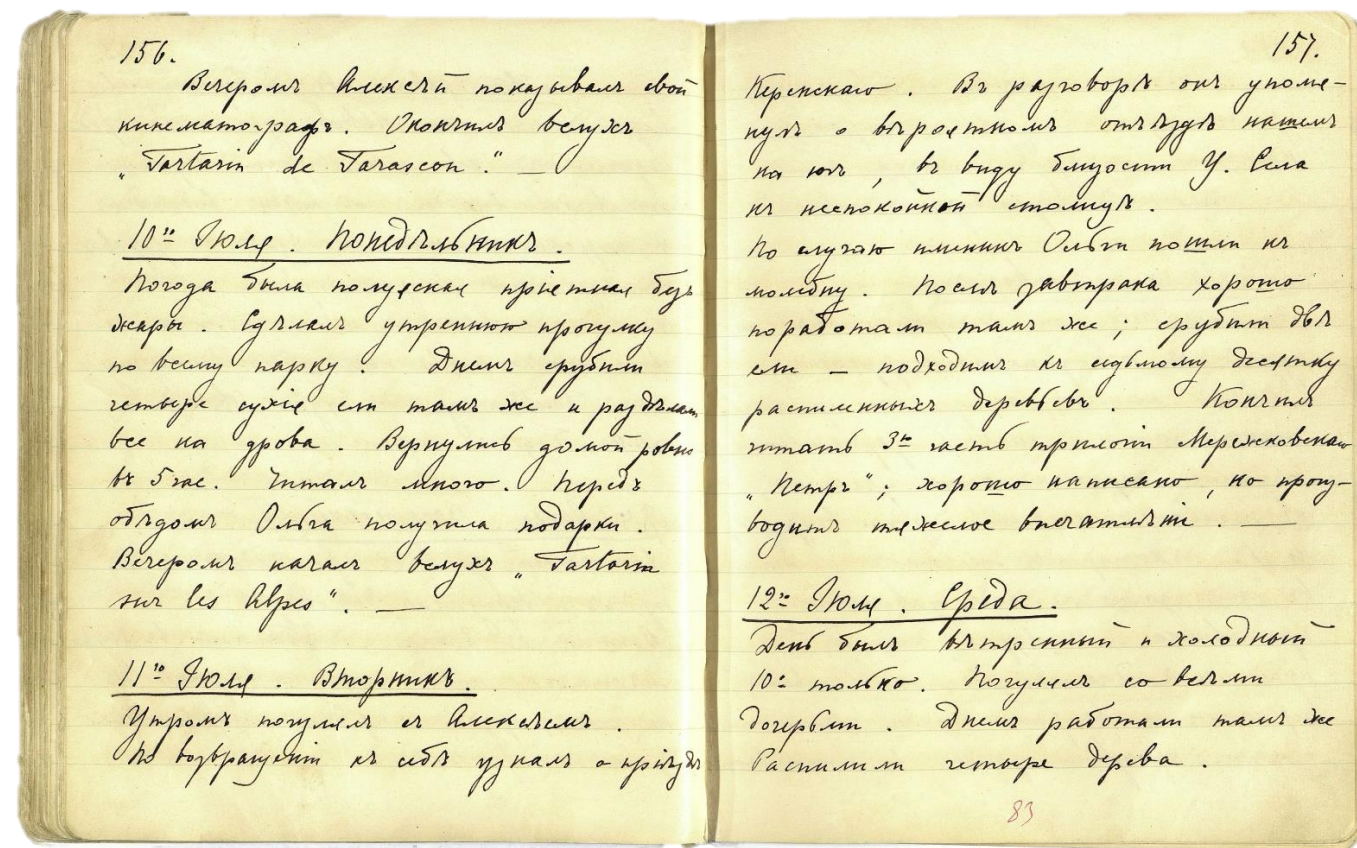 156.
Вечеромъ Алексѣй показывалъ свой
кинематографъ. Окончилъ вслухъ
„Tartarin de Tarascon.“ —
10го Іюля. Понедѣльникъ.
Погода была полуясная пріятная безъ
жары. Сдѣлалъ утреннюю прогулку
по всему парку. Днемъ срубили
четыре сухія ели тамъ же и раздѣлали
все на дрова. Вернулись домой ровно
въ 5 час. Читалъ много. Передъ
обѣдомъ Ольга получила подарки.
Вечеромъ началъ вслухъ „Tartarin
sur les Alpes“. —
11го Іюля. Вторникъ.
Утромъ погулялъ съ Алексѣемъ.
По возвращеніи къ себѣ узналъ о пріѣздѣ
157.
Керенскаго. Въ разговорѣ онъ упомя-
нулъ о вѣроятномъ отъѣздѣ нашемъ
на югъ, въ виду близости Ц. Села
къ неспокойной столицѣ.
По случаю именинъ Ольги пошли къ
молебну. Послѣ завтрака хорошо
поработали тамъ же; срубили двѣ
ели — подходимъ къ седьмому десятку
распиленныхъ деревьевъ. Кончилъ
читать 3ю часть трилогіи Мережковскаго
„Петръ“; хорошо написано, но произ-
водитъ тяжелое впечатлѣніе. —
12го Іюля. Среда.
День былъ вѣтренный и холодный
10° только. Погулялъ со всѣми
дочерьми. Днемъ работали тамъ же
Распилили четыре дерева.
83